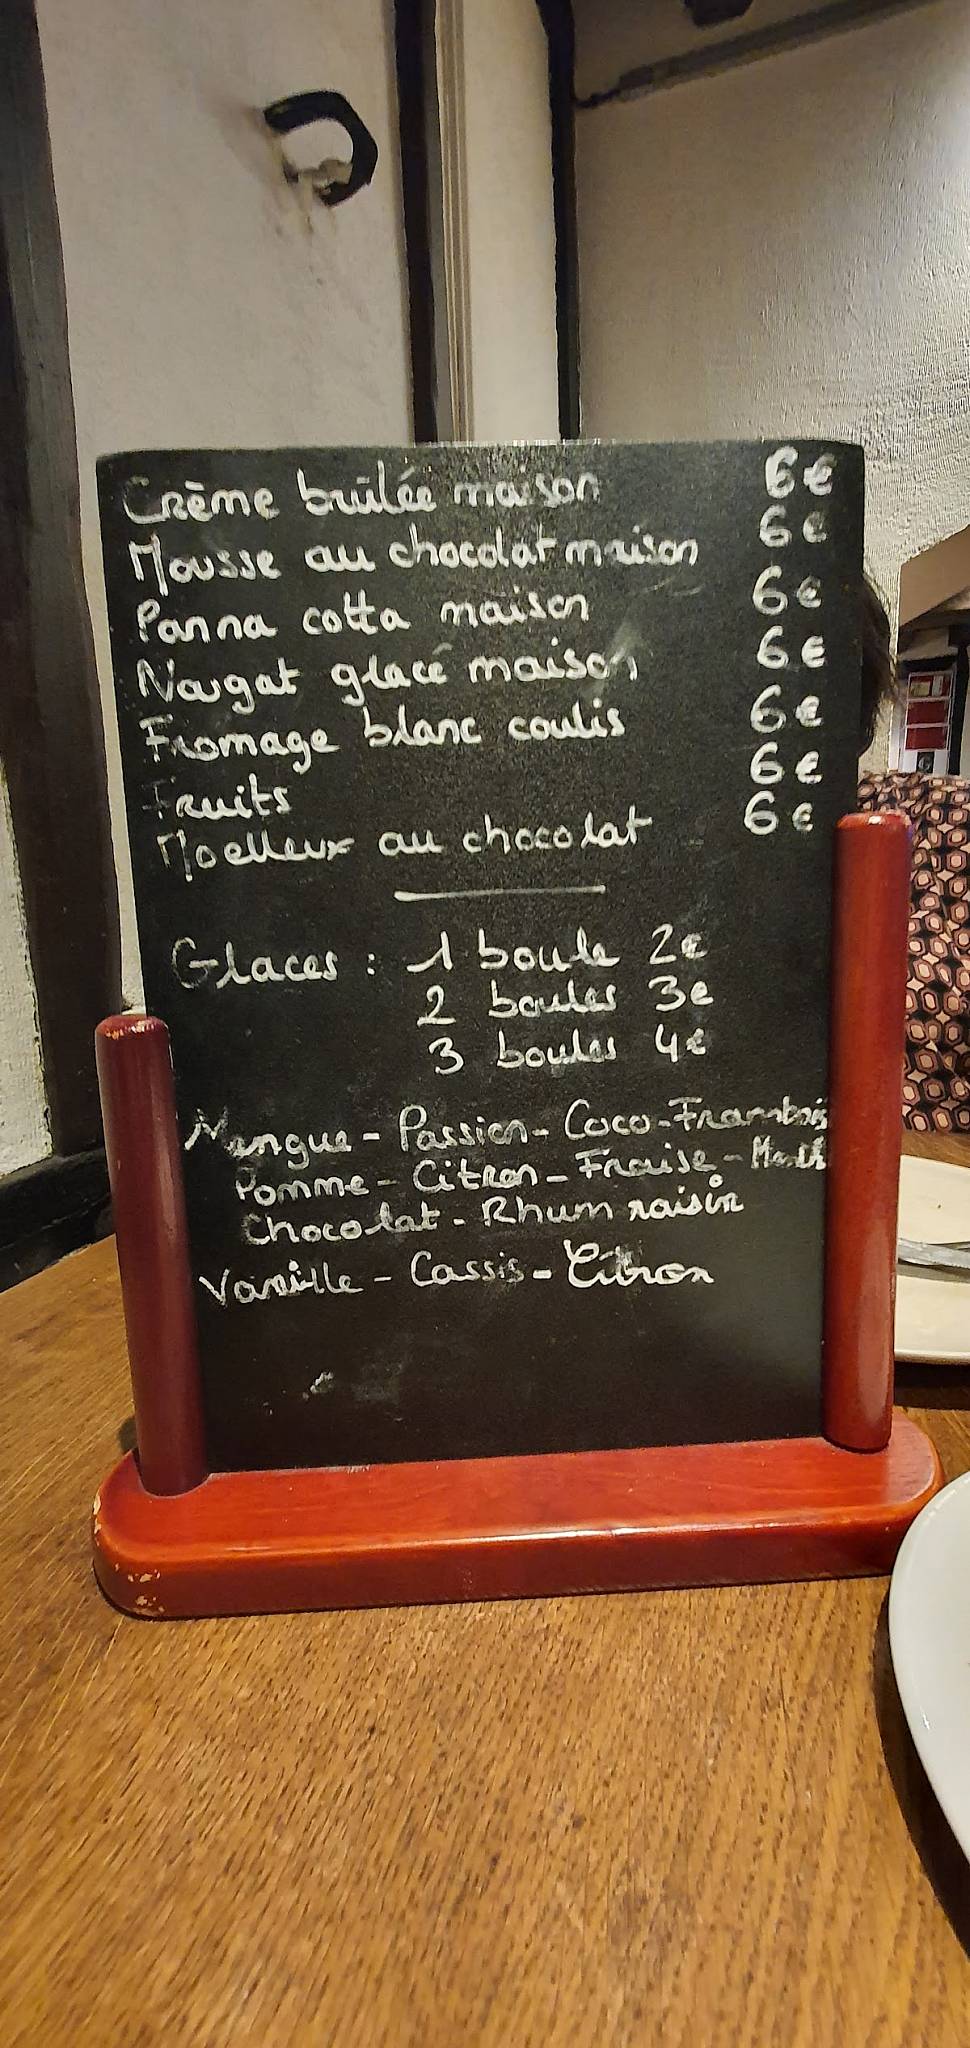 Crème brûlée maison 6€
Mousse au chocolat maison 6€
Panna cotta maison 6€
Nougat glacé maison 6€
Fromage blanc coulis 6€
Fruits 6€
Moelleux au chocolat 6€
Glaces : 1 boule 2€
2 boules 3€
3 boules 4€
Mangue - Passion - Coco - Frambois
Pomme - Citron - Fraise - Menth
Chocolat - Rhum raisin
Vanille - Cassis - Citron